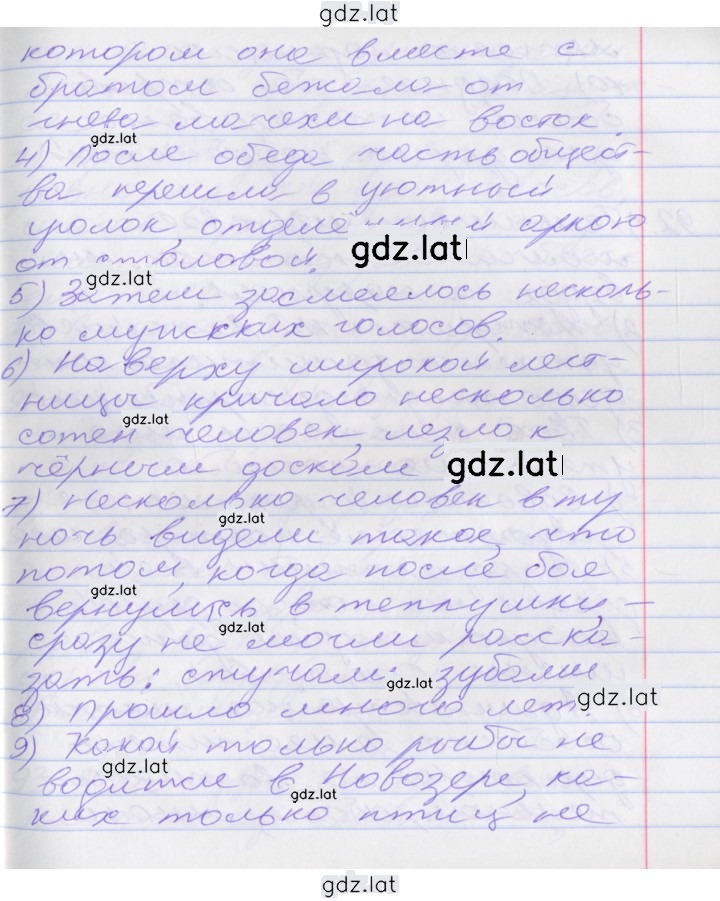 gdz.lat
котором она вместе с
братом бежала от
гнева мачехи на восток.
gdz.lat
4) После обеда часть общест-
ва перешла в уютный
уголок, отделённый аркою
gdz.lat
от столовой.
gdz.lat
5) Затем засмеялось несколь-
ко мужских голосов.
6) Наверху широкой лест-
ницы кричало несколько
gdz.lat
сотен человек, лезло к
чёрным доскам
gdz.lat
7) Несколько человек в ту
gdz.lat
ночь видели такое, что
потом, когда после боя
gdz.lat
вернулись в теплушки, -
gdz.lat
сразу не могли расска-
зать: стучали зубами
gdz.lat
gdz.lat
8) Прошло много лет.
9) Какой только рыбы не
gdz.lat
водится в Новозере, ка-
gdz.lat
ких только птиц не
gdz.lat